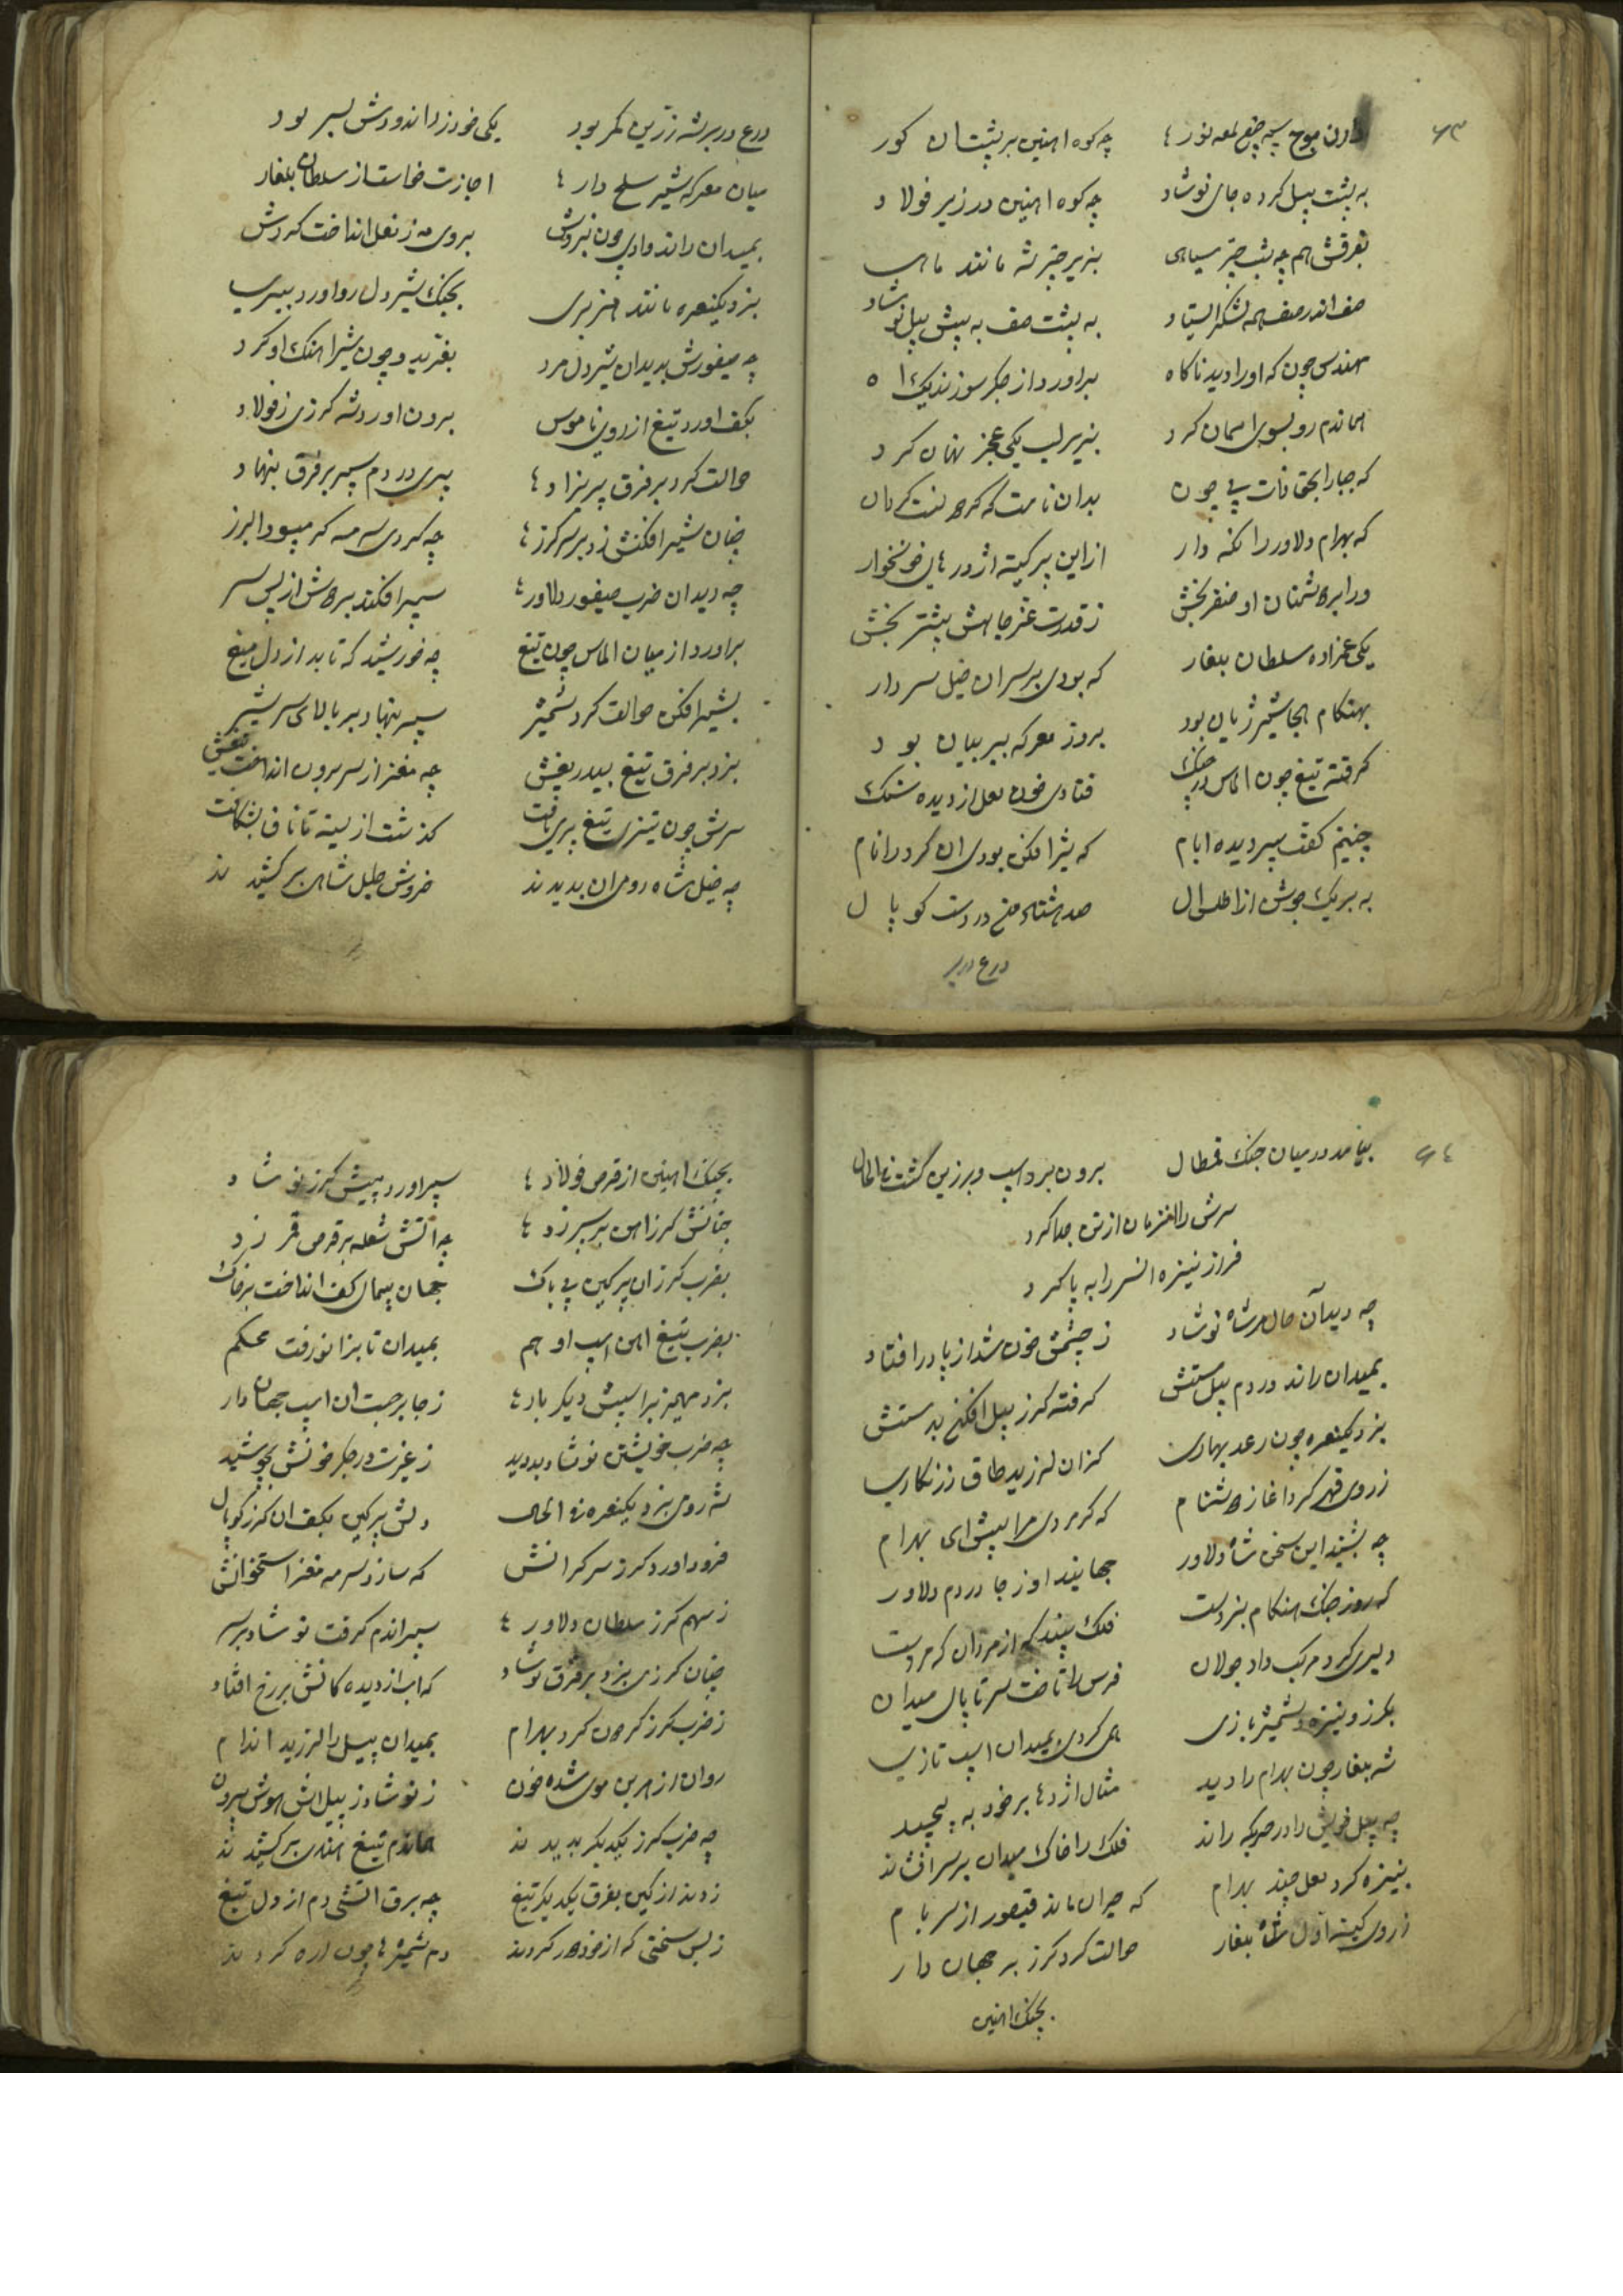 ۶۳
چه کوه اهنین بر پشت ان کور
به پشت پیل کرده جای نوشاد چه کوه اهنین در زیر فولاد
بفرقش هم چه شب چتر سیاهی بزیر چتر شه مانند ماهی
صف اندر صف همه لشکر ایستاد به پشت صف به پیش پیل نوشاد
مهندس چون که اورا دید ناکاه براورد از جکر سوزنده یک اه
هماندم رو بسوی اسمان کرد بزیر لب یکی عجز نهان کرد
که جبارا بحق ذات بی چون بدان نامت که
که بهرام دلاور را نکه دار از این پر کینه اژدرهای خونخوار
ورا بر دشمنان او ظفر بخش ز قدرت بیشتر بخش
یکی عمزاده سلطان بلغار که بودی بر سران خیل سردار
بهنکام شیر ژیان بود بروز معرکه ببر بیان بود
کرفته تیغ چون الماس در چنک فتادی خون لعل از دیده سنک
چنینم کفت پیر دیده ایام که شیرافکن بودی ان کرد را نام
به بر یک جوش از اطلس ال صد هشتاد من در دست کوپال
درع در بر
درع در بر شه زرین کمر بود یکی خود زراندودش بسر بود
میان معرکه شیر سلح دار اجازت خواست از سلطان بلغار
بمیدان راند وادی چون بروی مه ز نعل انداخت کردش
بزد یکنعره مانند هزبری بجنک شیر دل رو اورد ببری
چه میفورش بدیدان شیر دل مرد بغرید و چون شیر اهنک او کرد
بکف اورد تیغ از روی ناموس برون اورد شه کرزی ز فولاد
حوالت کرد بر فرق پریزاد پری در دم سپر بر فرق بنهاد
چنان شیرافکنش زد بر سر کرز چه کردی سرمه کر میبود البرز
چه دیدان ضرب میفور دلاور سپر افکند بر دوش از پس سر
براورد از میان الماس چون تیغ چه خورشید که تابد از دل میغ
بشیرافکن حوالت کرد شمشیر سپر بنهاد بر بالای سر شیر
بزد بر فرق تیغ بیدریغش چه مغز از سر برون انداخت تیغش
سرش چون تیزی تیغ پری یافت کذشت از سینه تا ناف بشکافت
چه خیل شاه روی ان بدیدند خروش طبل شاهی برکشیدند
۶۴
نیامد در میان جنک قمطال برون برد اسپ و برزین کشت
سرش را انزمان از تن جدا کرد
فراز نیزه انسر را به پا کرد
چه دید آن حال مرشاه نوشاد ز چشمش خون شد از پا در افتاد
بمیدان راند در دم پیل مستش کرفته کرز پیل افکن بدستش
بزد یکنعره چون رعد بهاری کزان لرزید طاق زرنکاری
ز روی قهر کرد اغاز دشنام که کر مردی مرا پیش ای بهرام
چه بشنید این سخن شاه دلاور جهانید او ز جا در دم دلاور
که روز جنک هنکام نبردست فلک بیند که از مردان که مردست
دلیری کرد مرکب داد جولان فرس را تاخت سر تا پال میدان
بکرز و نیزه و شمشیر بازی همی کردی بمیدان اسپ تازی
شه بلغار چون بهرام را دید مثال اژدها بر خود به پیچید
چه پیل خویش را در معرکه راند فلک را خاک میدان بر سر افشاند
بنیزه کرد لعل چند بهرام که حیران ماند قیصور از سر بام
ز روی کینه اول شاه بلغار حوالت کرد کرز بر جهان دار
بچنک اهنین
بچنک اهنین از قرص فولاد سپر اورد پیش کرز نوشاد
چنانش کرز اهن بر سپر زد چه اتش شعله بر قرص قمر زد
بضرب کرز ان پر کین بی باک جهان پیمای کف انداخت بر خاک
بضرب تیغ اهن اسپ او هم بمیدان تا بزانو رفت محکم
بزد مهمیز بر اسپش دیکر بار ز جا برجست ان اسپ جهان دار
چه ضرب خویشتن نوشاد بد دید ز غیرت در جکر خونش بجوشید
شه رومی بزد یکنعره در الحال دلش پر کین بکف ان کرز کوپال
فرود اورد کرز سر کرانش که سازد سرمه مغز استخوانش
ز سهم کرز سلطان دلاور سپر اندم کرفت نوشاد بر سر
چنان کرزی بزد بر فرق نوشاد که اب از دیده کانش بر رخ افتاد
ز ضرب کرز کر چون کرد بهرام بمیدان پیل را لرزید اندام
روان از هر بن موی شده خون ز نوشاد ز پیل اش هوش بیرون
چه ضرب کرز یکدیکر بدیدند هماندم تیغ هندی برکشیدند
زدند از کین بفرق یکدیکر تیغ چه برق اتشی دم از دل تیغ
ز بس سختی که از خود در کردند دم شمشیرها چون اره کردند